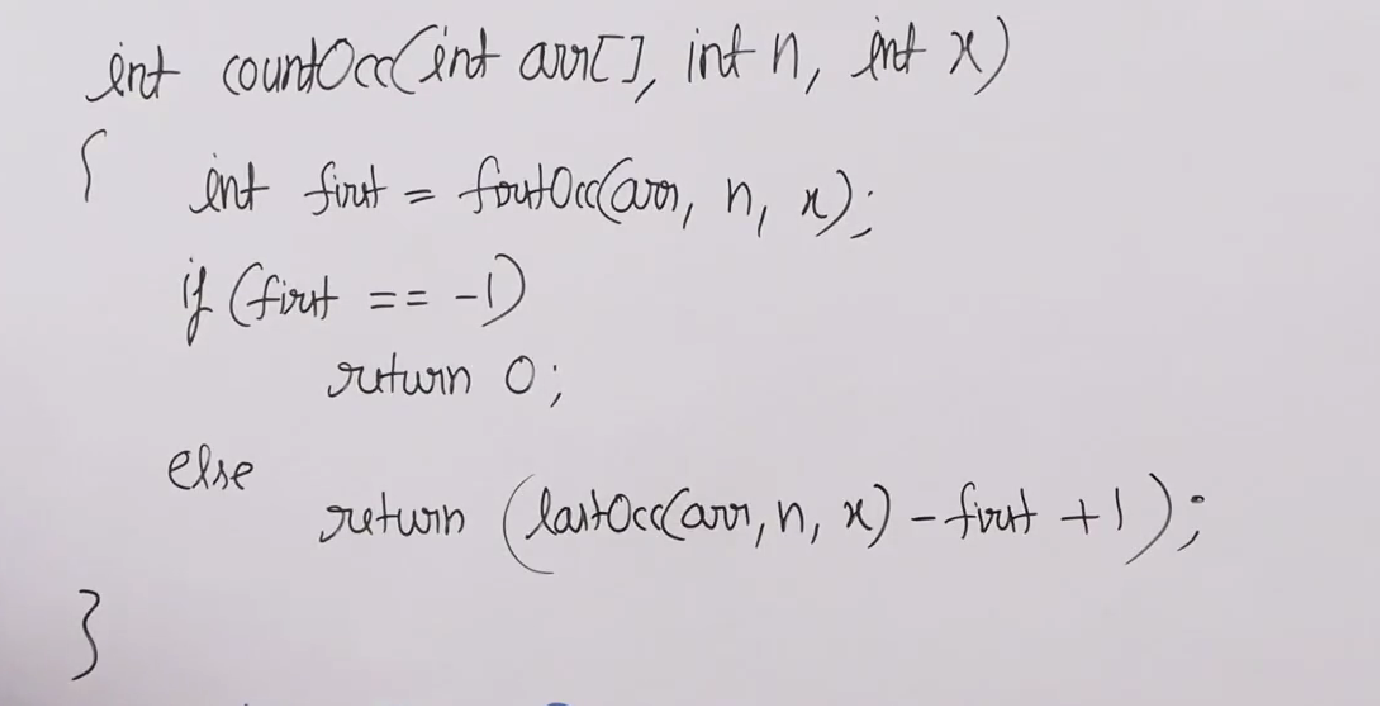 int countOcc(int arr[], int n, int x)
{ int first = firstOcc(arr, n, x);
if (first == -1)
return 0;
else
return (lastOcc(arr, n, x) - first + 1);
}